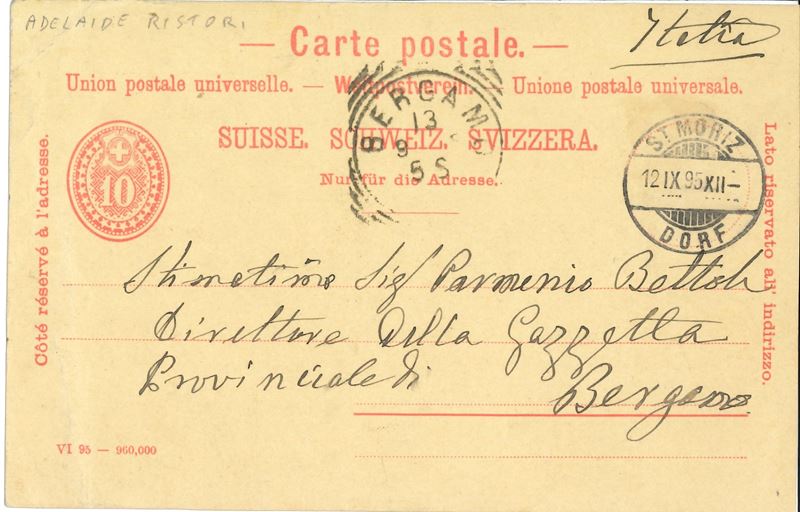 ADELAIDE RISTORI
Italia
— Carte postale. —
Union postale universelle. — Weltpostverein. — Unione postale universale.
SUISSE. SCHWEIZ. SVIZZERA.
Nur für die Adresse.
10
BERGAMO
13
9
5 S
ST. MORIZ
12 IX 95 XII–
DORF
Côté réservé à l'adresse.
Lato riservato all' indirizzo.
Stimatissmo Sigr Parmenio Bettoli
Direttore Della Gazzetta
Provinciale di
Bergamo
VI 95 — 960,000